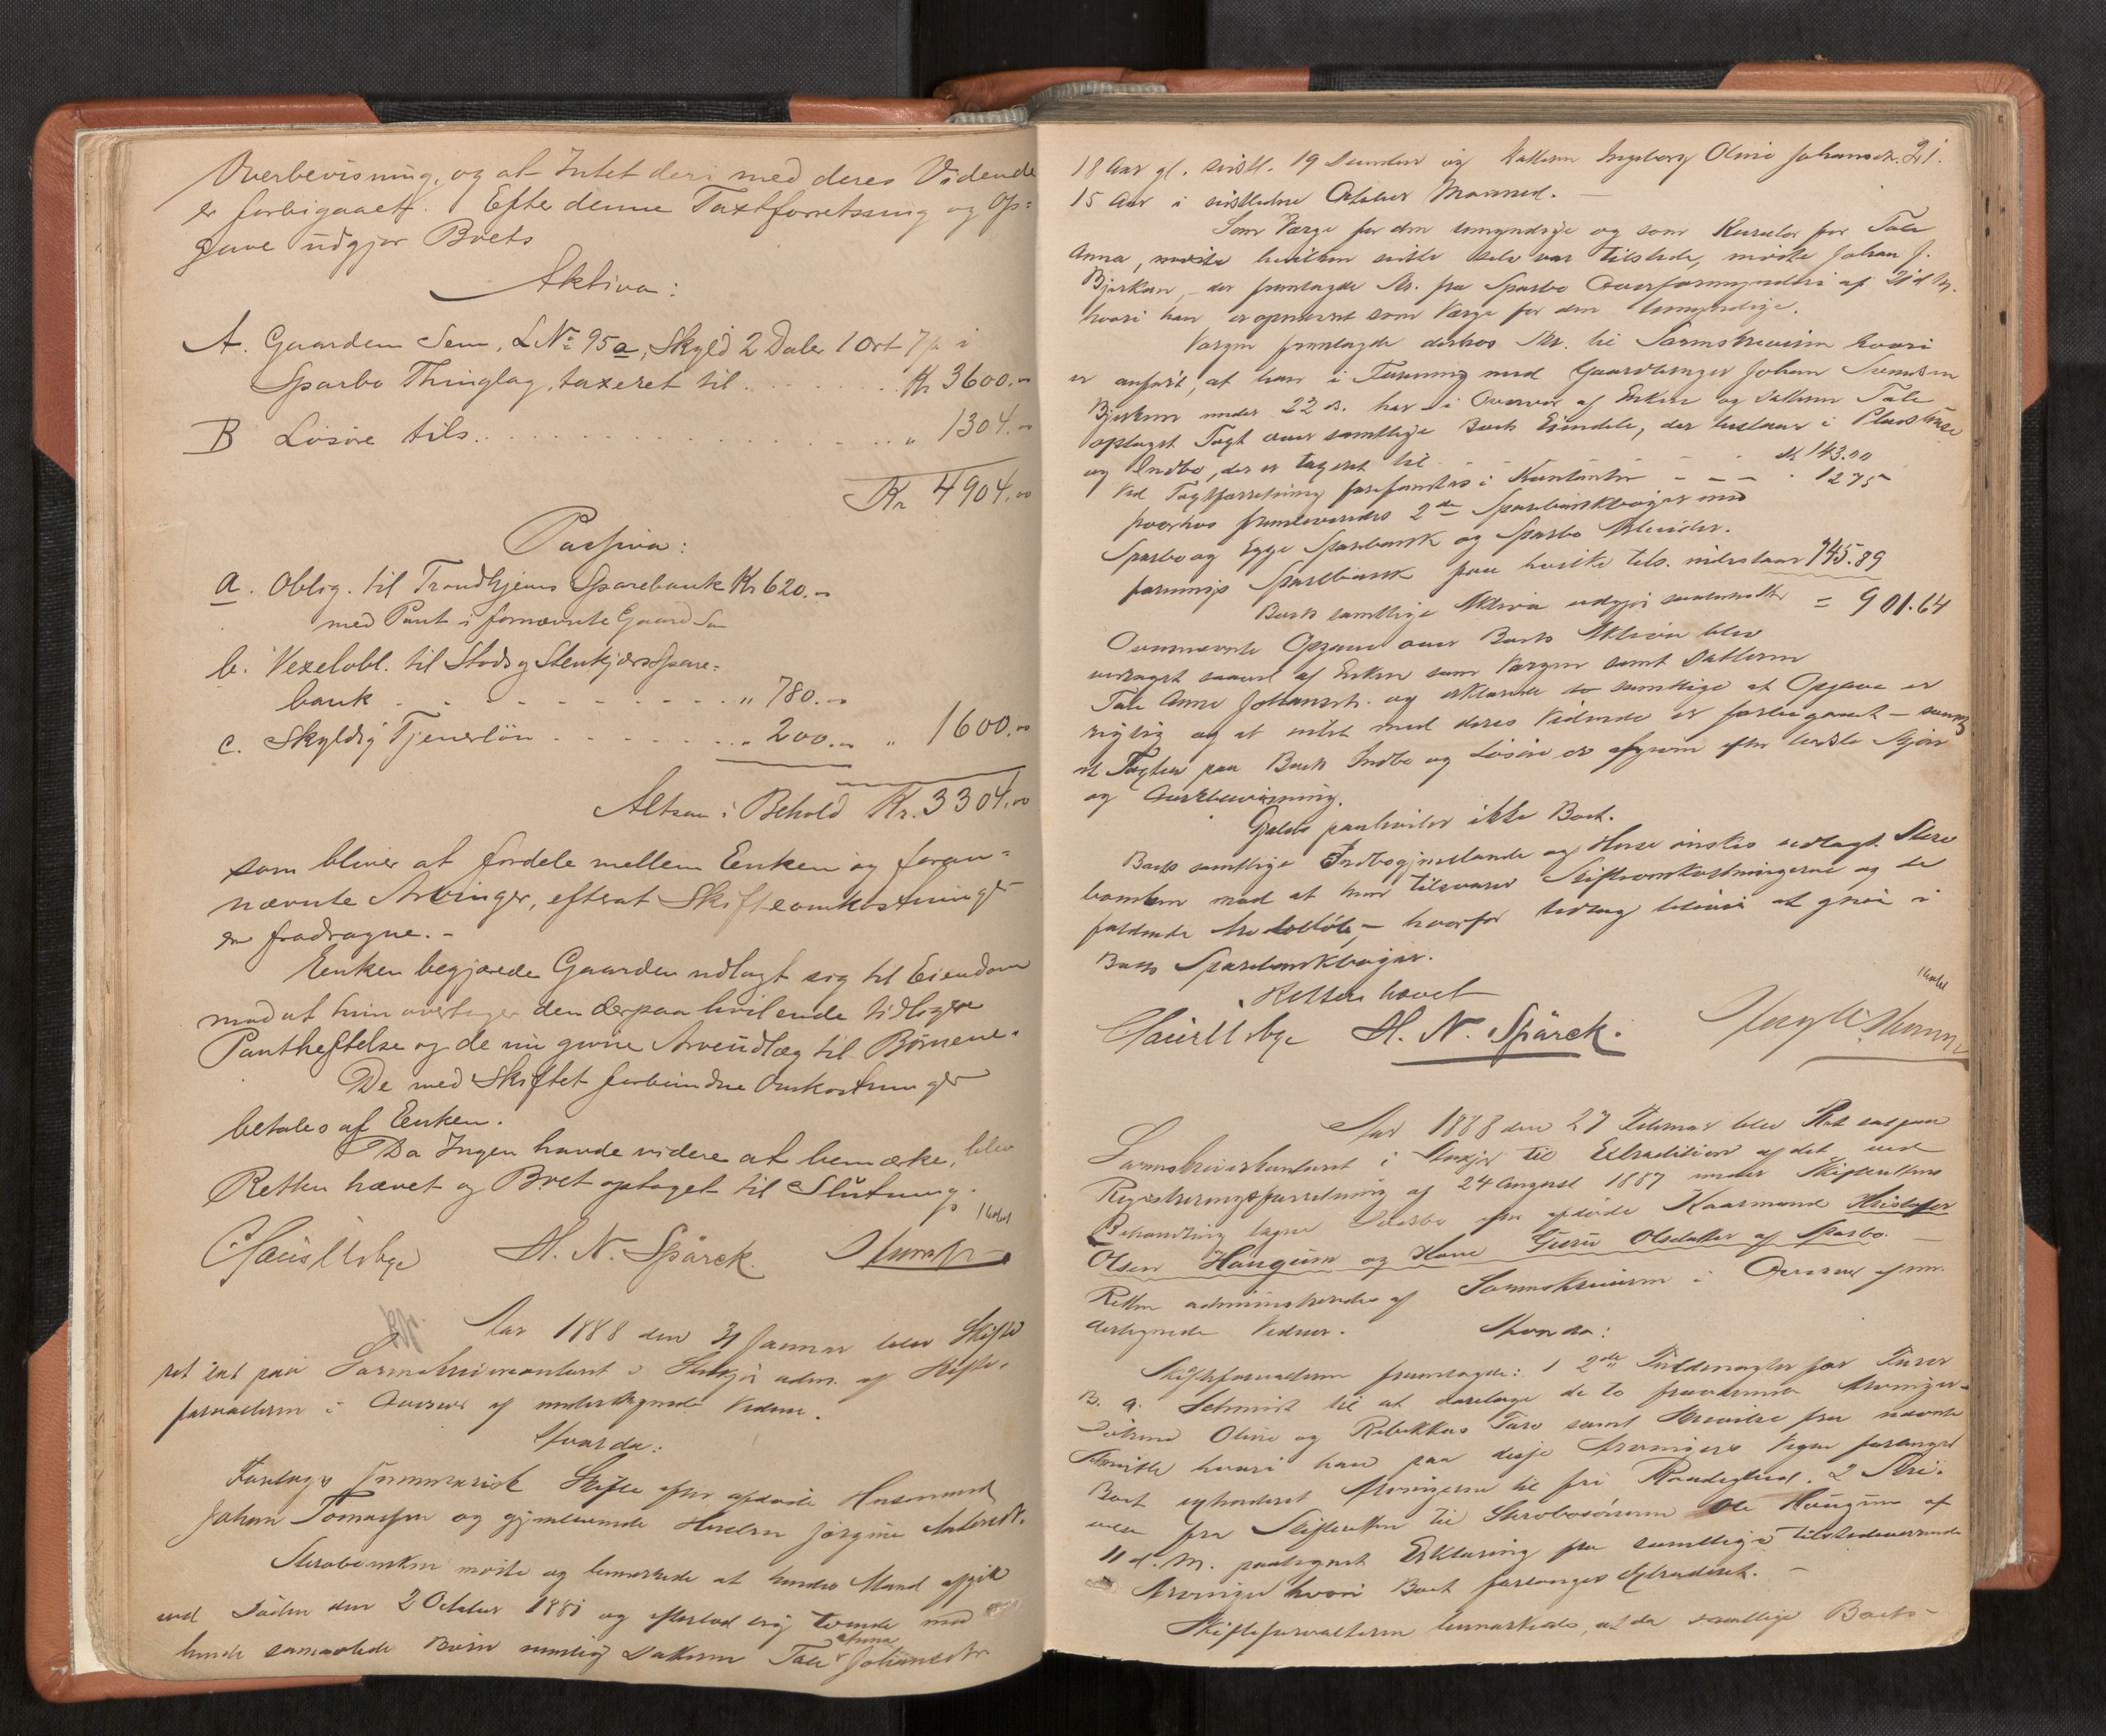 Overbevisning, og at Intet deri med deres Vidende
er forbigaaet. Efter denne Taxtforretning og Op=
gave udgjør Boets
Aktiva:
A. Gaarden Sem, LNo 95a, Skyld 2 Daler 1 Ort 7 β i
Sparbo Thinglag, taxeret til . . . . . . . Kr 3600.00
B Løsøre tils. . . . . . . . . . . . . . . . . . . „ 1304.00
Kr 4904.00
Passiva:
a. Oblig. til Trondhjems Sparebank Kr 620.00
med Pant i fornævnte Gaard Sem
b. Vexelobl. til Stod og Stenkjærs Spare=
bank . . . . . . . . . . „ 780.00
c. Skyldig Tjenerløn . . . . . . . „ 200.00 „ 1600.00
Altsaa i Behold Kr. 3304.00
som bliver at fordele mellem Enken og foran=
nævnte Arvinger, efterat Skifteomkostninger
er fradragne. -
Enken begjærede Gaarden udlagt sig til Eiendom
mod at hun overtager den derpaa hvilende tidligere
Pantheftelse og de nu givne Arveudlæg til Børnene.
De med Skiftet forbundne Omkostninger
betales af Enken.
Da Ingen havde videre at bemærke, blev
Retten hævet og Boet optaget til Slutning.
H. N. Spärck.
Aar 1888 den 31 Januar blev Skifte
ret sat paa Sorenskriverkontoret i Stenkjær adm. af Skifte-
forvalteren i Overvær af undertegnede Vidner.
Hvorda:
Foretoges summarisk Skifte efter afdøde Husmand
Johan Tomassen og gjenlevende Hustru Jørgine
Skiftede Enken mødte og bemærkede at hendes Mand afgik
ved Døden den 2 October 1881 og efterlod sig tvende med
hende sammenavlede Børn nemlig Datteren Tale Anna Johansdtr
21.
18 Aar gl. sidstl. 19 December og Datteren Ingeborg Oline Johansdtr.
15 Aar i sidstledne October Maaned. -
Som Værge for den umyndige og som Kurator for Tale
Anna, mødte hvilken sidste selv var tilstede, mødte Johan J.
Bjerkan, der fremlagde Skr. fra Sparbo Overformynderi af 21 d. M.
hvori han er opnævnt som Værge for den umyndige.
Værgen fremlagde derhos Skr. til Sorenskriveren hvori
er anført, at han i Forening med Gaardbruger Johan Svendsen
Bjerkan under 22 ds. har i Overvær af Enken og Datteren Tale
optaget Taxt over samtlige Boets Eiendele, der bestaar i Pladshuse
og Indbo, der er taxeret til - Kr 143.00
Ved Taxtforretning forefandtes i Kontanter - - - 12 75
hvorhos fremlevertes 2de Sparebankbøger med
Sparbo og Egge Sparebank og Sparbo Arbeider-
forenings Sparebank paa hvilke tils. indestaar 745.89
Boets samtlige Aktiva udgjør saaledes = 901.64
Ovennævnte Opgave over Boets Aktiva blev
vedtaget saavel af Enken som Værgen samt Datteren
Tale Anna Johansdtr. og erklærede de samtlige at Opgave er
rigtig og at intet med deres Vidende er forbigaaet - samt
at Taxten paa Boets Indbo og Løsøre er afgiven efter bedste Skjøn
og Overbevisning.
Gjæld paahviler ikke Boet.
Boets samtlige Indbogjenstande og Huse ønskes udlagt
mod at hun tilsvarer Skifteomkostningerne og de
faldende Arvelodder, - hvorfor Udlæg bliver at give i
Boets Sparebankbøger.
Retten hævet
H. N. Spärck.
Aar 1888 den 27 Februar blev Ret sat paa
Sorenskriverkontoret i Stenkjær til Extradition af det ved
Registreringsforretning af 24 August 1887 under Skifterettens
Behandling tagne Dødsbo efter afdøde Kaarmand Kristofer
Olsen Haugum og Kone Guru Olsdatter af Sparbo. -
Retten administreredes af Sorenskriveren i Overvær af un-
dertegnede Vidner. Hvorda:
Skifteforvalteren fremlagde: 1 2de Fuldmagter for
B. A. Schmidt til at varetage de to fraværende Arvinger
Oline og Rebekka samt Skrivelse fra nævnte
Schmidt hvori han paa disse Arvingers Vegne forlanger
Boet extraderet Arvingerne til fri Raadighed. 2 Skri-
velse fra Skifteretten til Skiftebestyreren Ole Haugum af
11 d. M. paategnet Erklæring fra samtlige tilstedeværende
Arvinger hvori Boet forlanges extraderet. -
Skifteforvalteren bemærkede, at da samtlige Boets